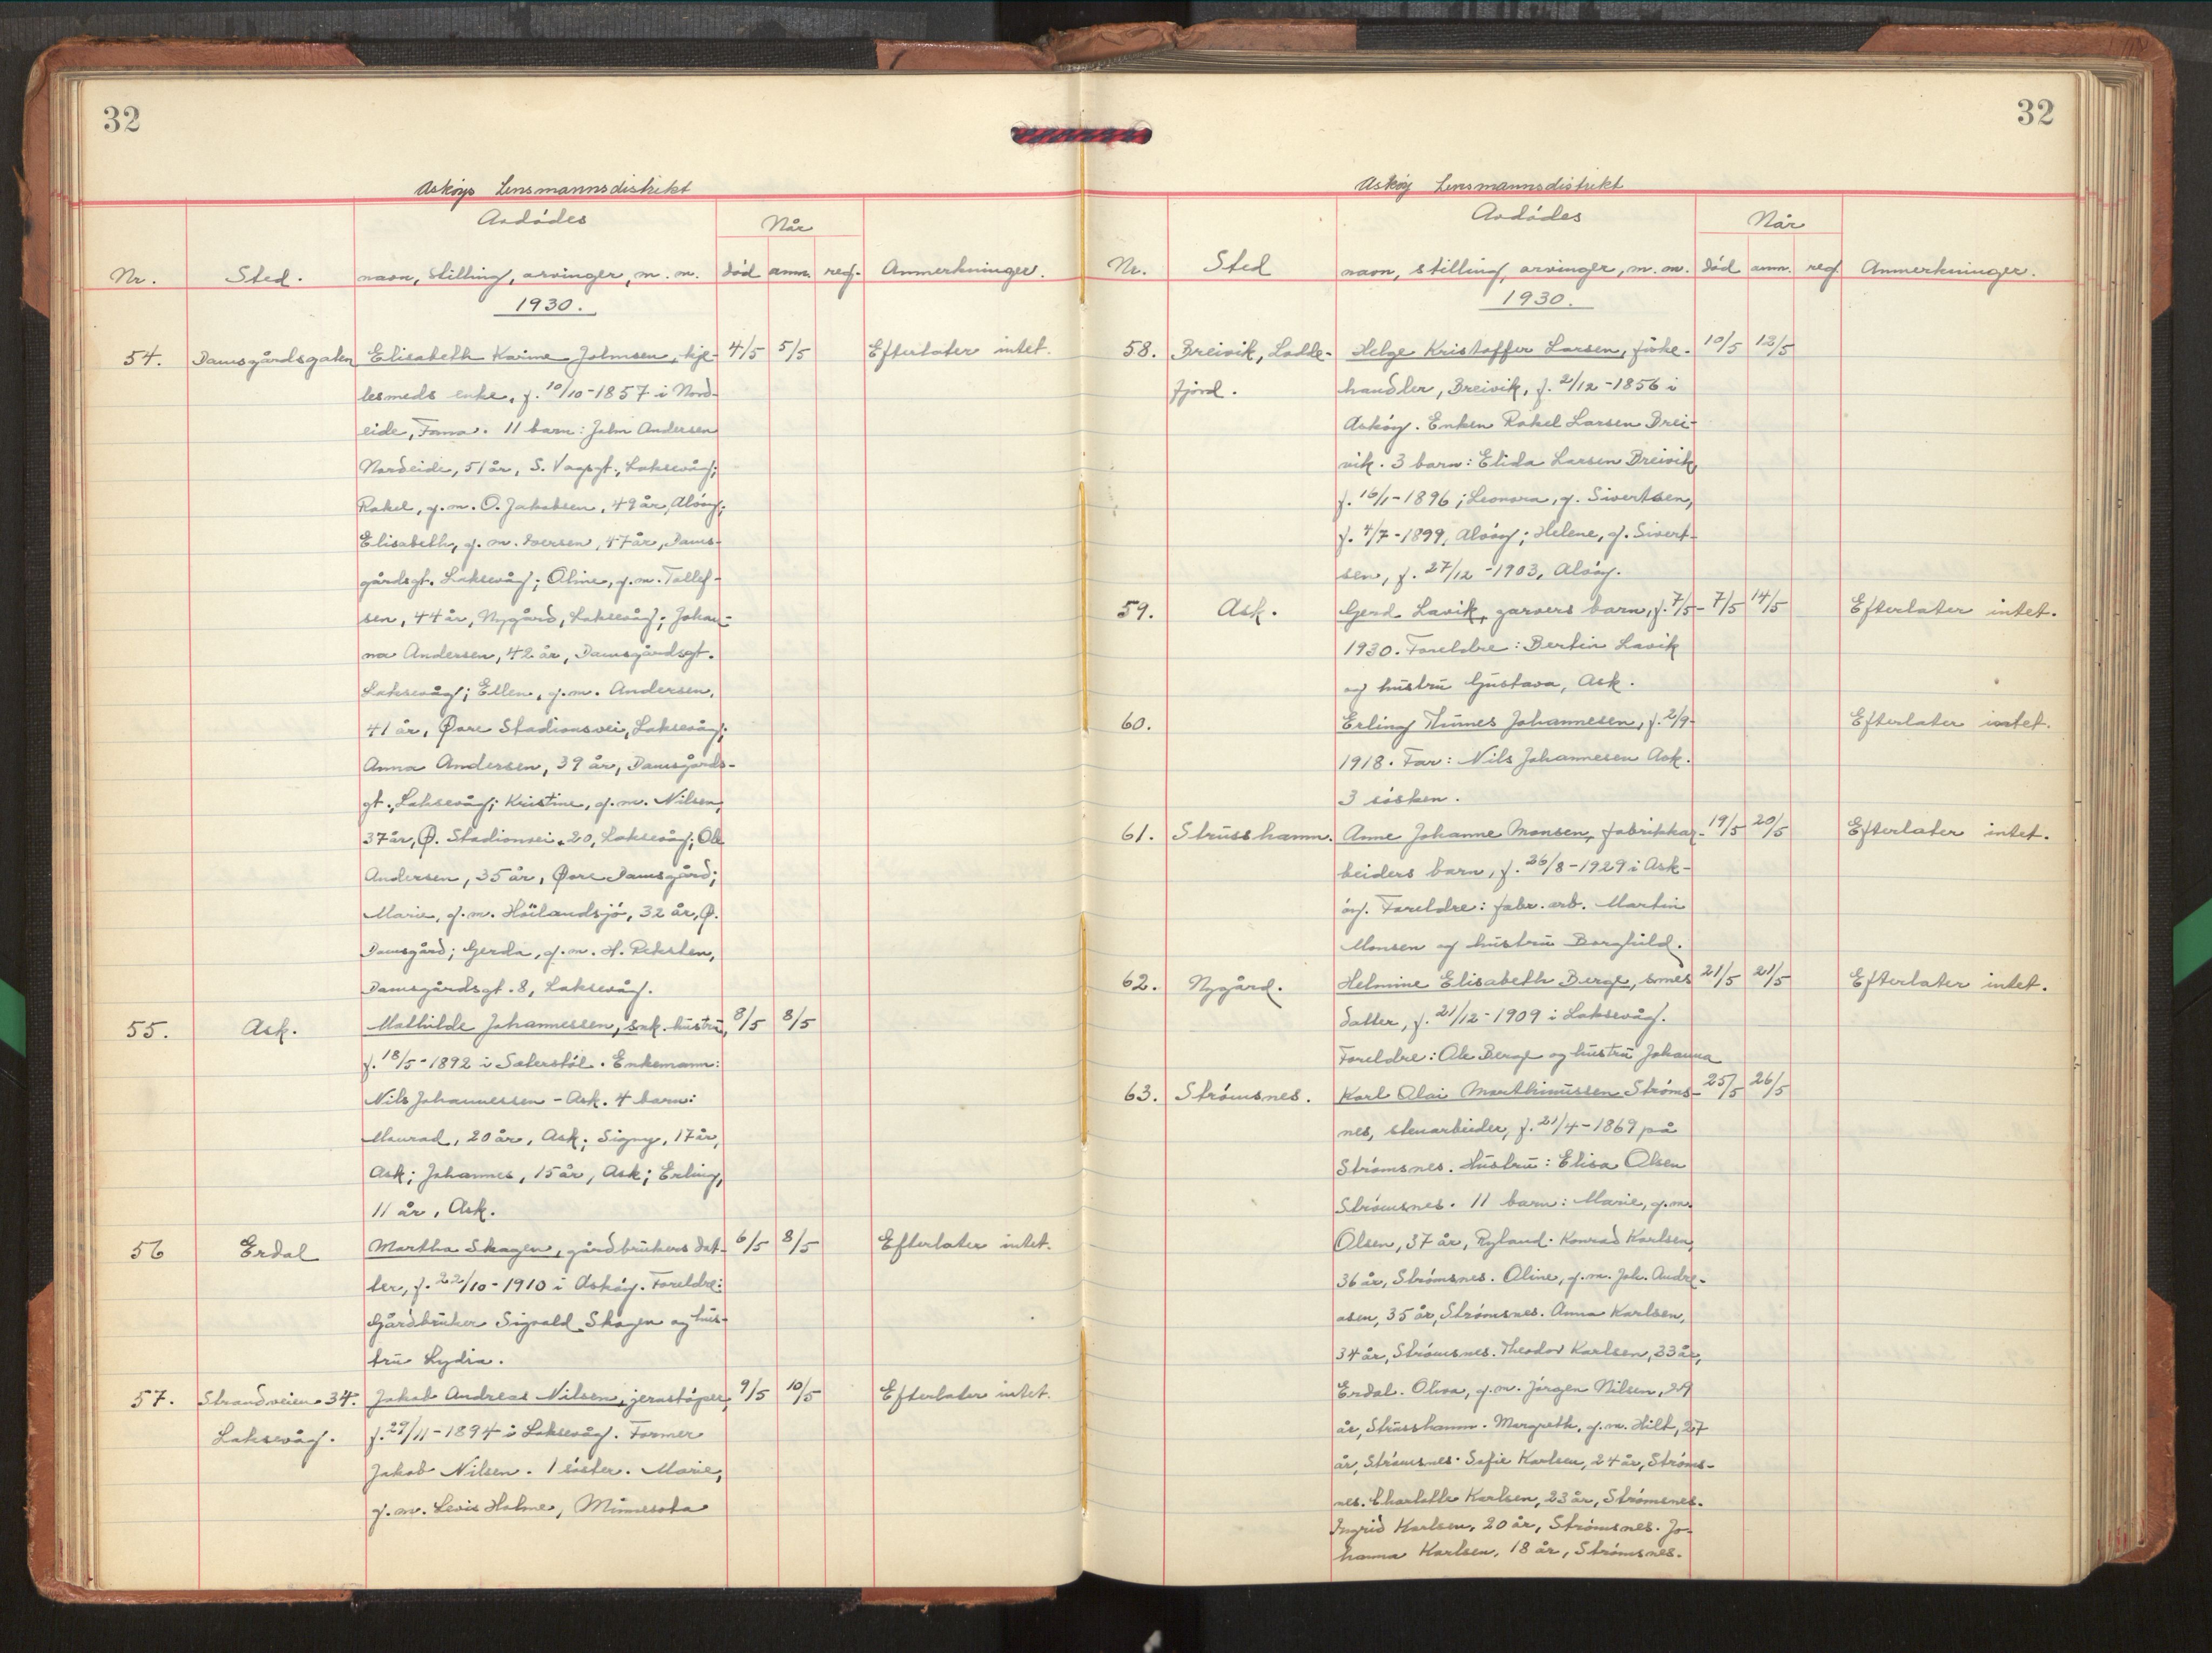 32
Askøys Lensmannsdistrikt
Avdødes
Når
Nr. Sted. navn, stilling, arvinger, m. m. død anm. reg. Anmerkninger.
1930.
54. Damsgårdsgaten Elisabeth Karine Johnsen, kje- 4/5 5/5 Efterlater intet.
lesmeds enke, f. 10/10-1857 i Nord-
eide, Fana. 11 barn: John Andersen
Nordeide, 51 år, S. Vagsgt., Laksevåg;
Rakel, g.m. O. Jakobsen, 49 år, Aløøy;
Elisabeth, g.m. Iversen, 47 år, Dams-
gårdsgt. Laksevåg; Oline, g.m. Tollef-
sen, 44 år, Nygård, Laksevåg; Johan-
na Andersen, 42 år, Damsgårdsgt.
Laksevåg; Ellen, g.m. Andersen,
41 år, Øvre Stadionsvei, Laksevåg;
Anna Andersen, 39 år, Damsgårds-
gt., Laksevåg; Kristine, g.m. Nilsen,
37 år, Ø. Stadionvei 20, Laksevåg; Ole
Andersen, 35 år, Øvre Damsgård;
Marie, g.m. Høilandsjø, 32 år, Ø.
Damsgård; Gerda, g.m. H. Reksten,
Damsgårdsgt. 8, Laksevåg.
55. Ask. Mathilde Johannessen, snk. hustru, 8/5 8/5
f. 18/5-1892 i Seterstøl. Enkemann:
Nils Johannessen - Ask. 4 barn:
Maurad, 20 år, Ask; Signy, 17 år,
Ask; Johannes, 15 år, Ask; Erling,
11 år, Ask.
56 Erdal Martha Skagen, gårdbrukers dat- 6/5 8/5 Efterlater intet.
ter, f. 22/10-1910 i Askøy. Foreldre:
Gårdbruker Sigvald Skagen og hus-
tru Lydia.
57. Strandveien 34. Jakob Andreas Nilsen, jernstøper, 9/5 10/5 Efterlater intet.
Laksevåg. f. 29/11-1894 i Laksevåg. Farmer
Jakob Nilsen. 1 søster. Marie,
g.m. Levis Holme, Minnesota
32
Askøy Lensmannsdistrikt
Avdødes
Når
Nr. Sted navn, stilling, arvinger, m. m. død anm. reg Anmerkninger.
1930.
58. Breivik, Lodde- Helge Kristoffer Larsen, fiske- 10/5 12/5
fjord. handler, Breivik, f. 2/12-1856 i
Askøy. Enken Rakel Larsen Brei-
vik. 3 barn: Elida Larsen Breivik,
f. 16/1-1896; Leonora, g. Sivertsen,
f. 4/7-1899, Aløøy; Helene, g. Sivert-
sen, f. 27/12-1903, Aløøy.
59. Ask. Gerd Lavik, garvers barn, f. 7/5- 7/5 14/5 Efterlater intet.
1930. Foreldre: Bertin Lavik
og hustru Gustava, Ask.
60. Erling Thunes Johannesen, f. 2/9- Efterlater intet.
1918. Far: Nils Johannesen Ask.
3 søsken.
61. Strusshamn. Anne Johanne Monsen, fabrikkar- 19/5 20/5 Efterlater intet.
beiders barn, f. 26/8-1929 i Ask-
øy. Foreldre: fabr. arb. Martin
Monsen og hustru Borghild.
62. Nygård. Helmine Elisabeth Berge, smeds 21/5 21/5 Efterlater intet.
datter, f. 21/12-1909 i Laksevåg.
Foreldre: Ole Berge og hustru Johanna
63. Strømsnes. Karl Olai Marthinussen Strøms- 25/5 26/5
nes, stenarbeider, f. 21/4-1869 på
Strømsnes. Hustru: Elisa Olsen
Strømsnes. 11 barn: Marie, g.m.
Olsen, 37 år, Ryland. Konrad Karlsen,
36 år, Strømsnes. Oline, g.m. Joh. Andre-
asen, 35 år, Strømsnes. Anna Karlsen,
34 år, Strømsnes. Theodor Karlsen, 33 år,
Erdal. Oliva, g.m. Jørgen Nilsen, 29
år, Strusshamn. Margreth, g.m. Hilt, 27
år, Strømsnes. Sofie Karlsen, 24 år, Strøms-
nes. Charlotte Karlsen, 23 år, Strømsnes.
Ingrid Karlsen, 20 år, Strømsnes. Jo-
hanna Karlsen, 18 år, Strømsnes.